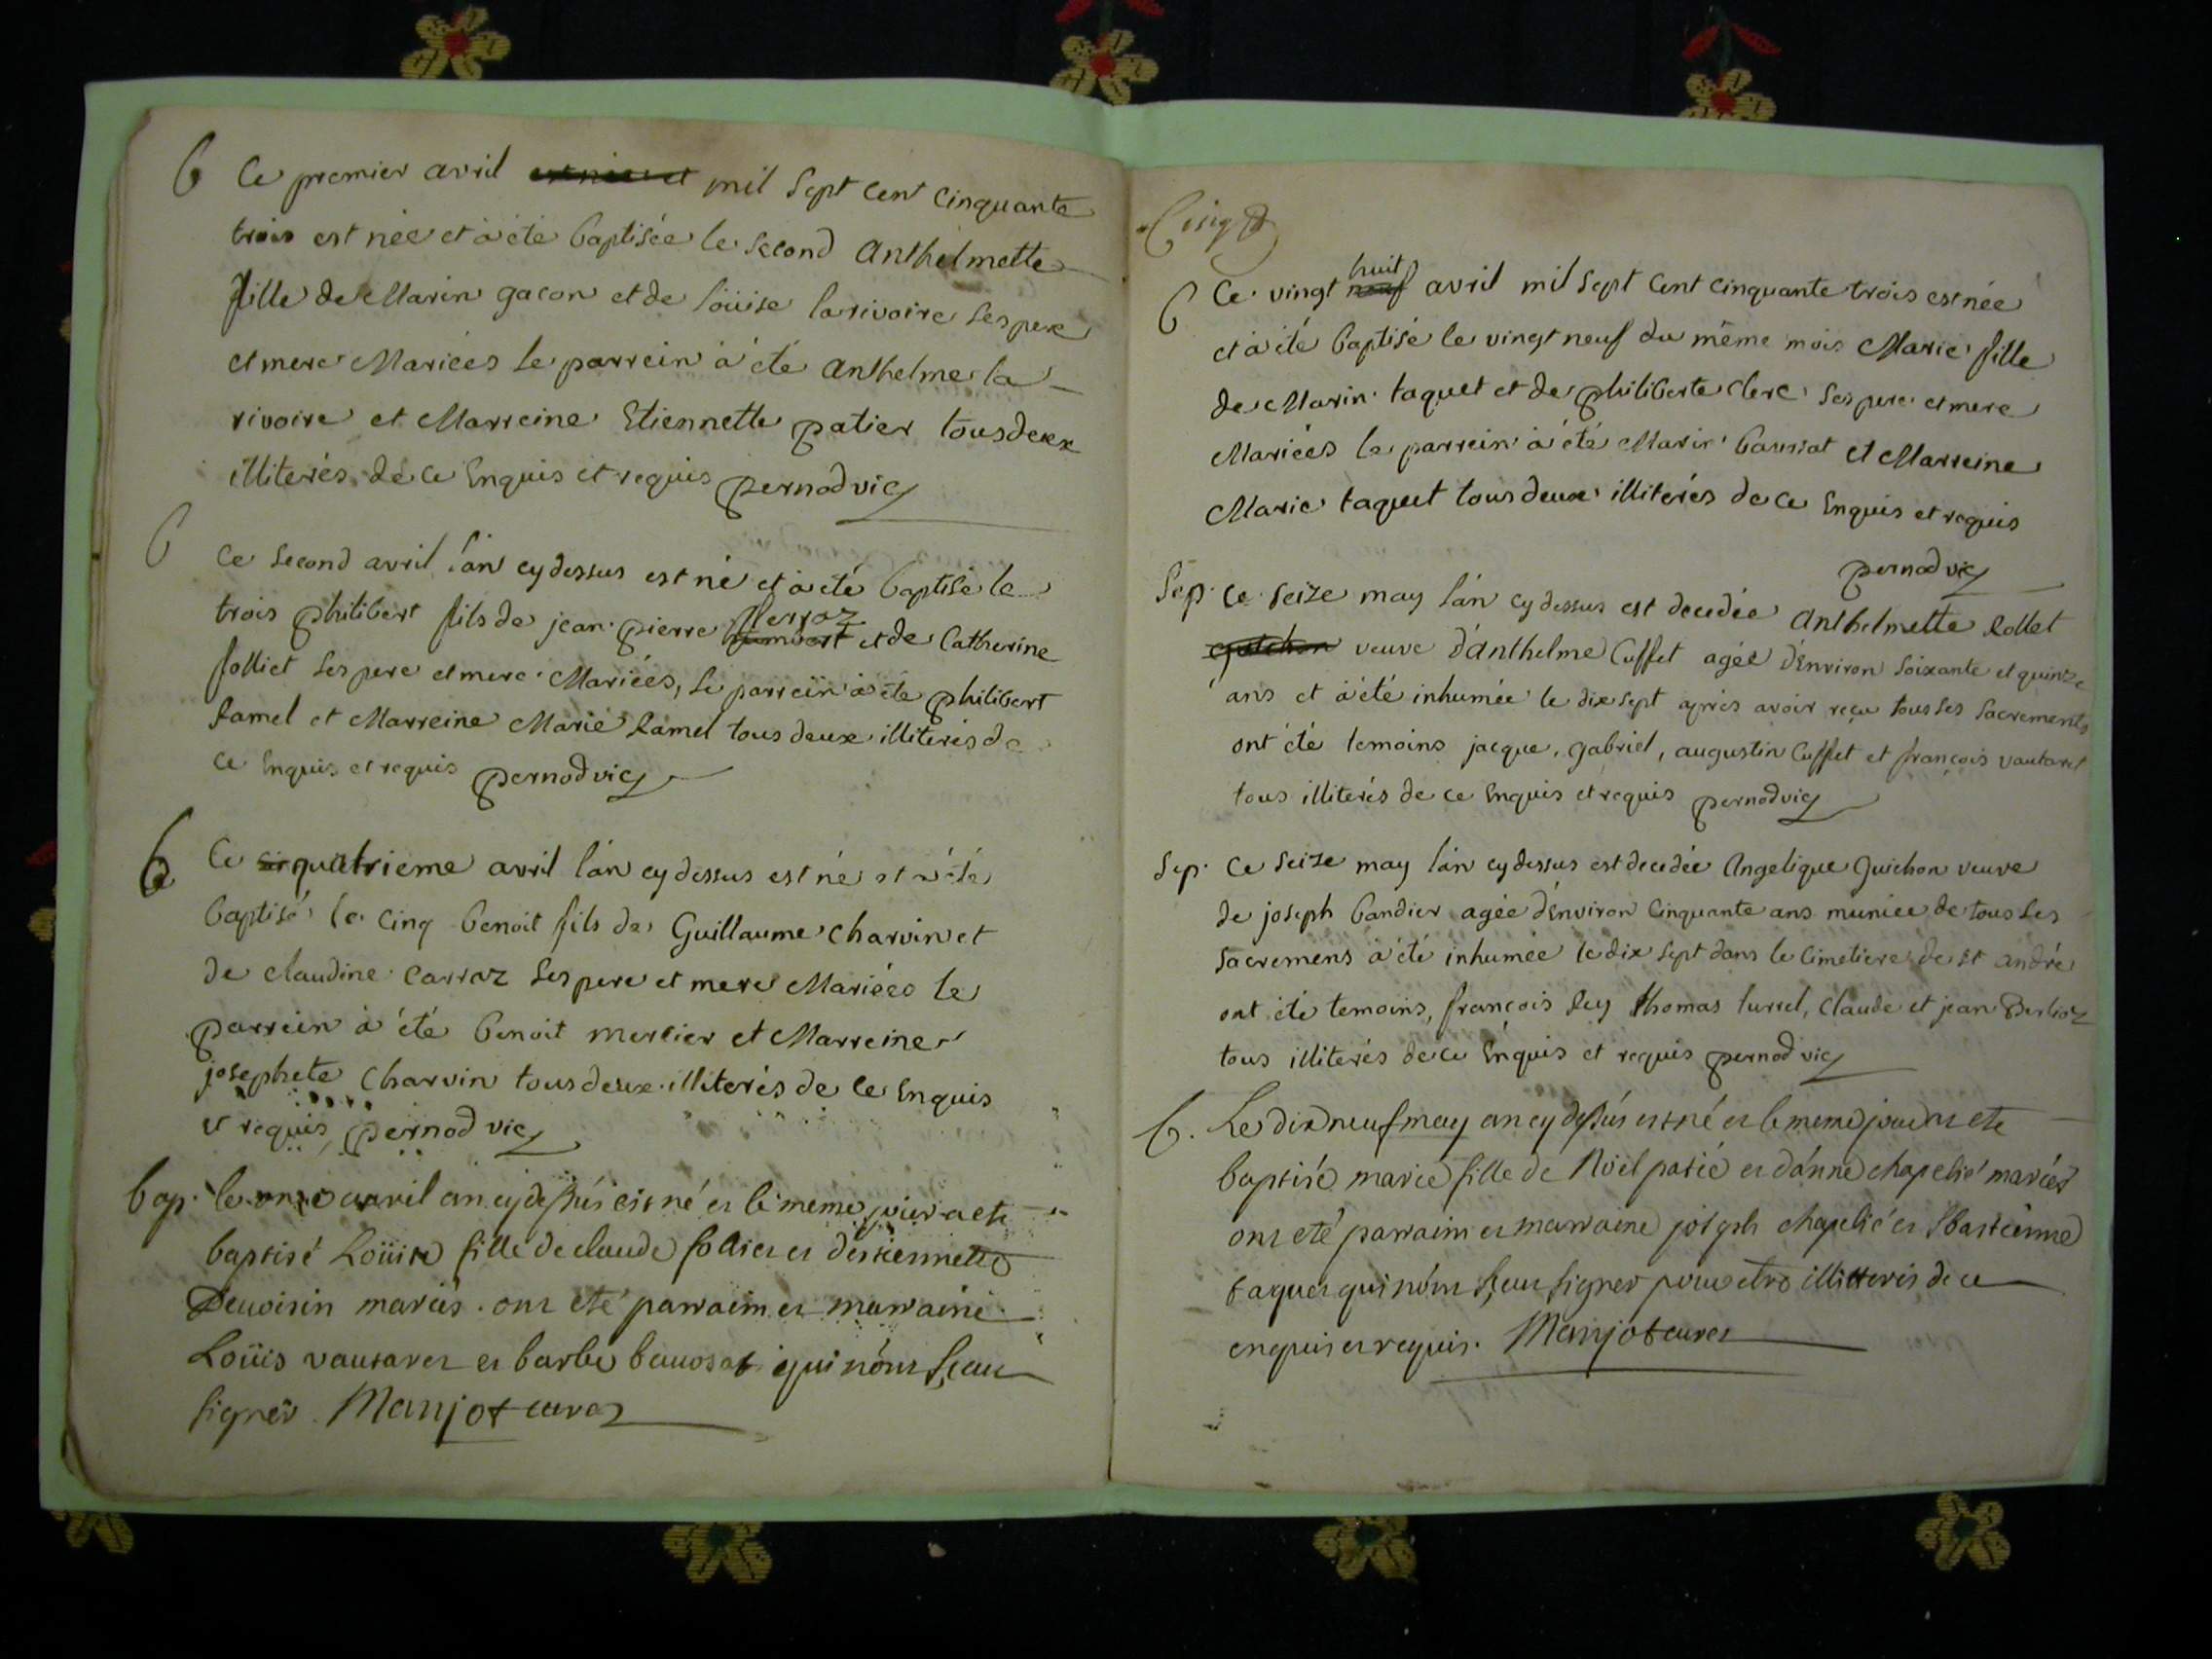 B Ce premier avril mil Sept Cent Cinquante
trois est née et à été Baptisée le Second Anthelmette
fille de Marin gacon et de loüise larivoire Ses pere
et mere Mariées le parrein à été Anthelme la
rivoire et Marreine Etiennette patier tous deux
illiterés de ce Enquis et requis pernod vic
B Ce Second avril l'an cy dessus est né et à été Baptisé le
trois philibert fils de jean pierre et de Catherine
folliet Ses pere et mere Mariées, le parrein à été philibert
Ramel et Marreine Marie Ramel tous deux illiterés de
Ce Enquis et requis pernod vic
B Ce quatrieme avril l'an cy dessus est né et à été
Baptisé le Cinq Benoit fils de Guillaume Charvin et
de Claudine Carraz Ses pere et mere Mariées le
parrein à été Benoit mercier et Marreine
josephete Charvin tous deux illiterés de Ce Enquis
et requis pernod vic
bap. le onze avril an cy dessus est né et le meme jour a ete
baptisé Loüise fille de claude follier et d'estiennette
Devoisin mariés. ont eté parraim et marraine
Loüis vautaret et barbe bauosat qui n'ont sçeu
signer. Manjot curez
B Ce vingt huit avril mil Sept Cent Cinquante trois est née
et à été Baptisé le vingt neuf du même mois Marie fille
de Marin taquet et de philiberte Clerc Ses pere et mere
Mariées le parrein à été Marin Baussat et Marreine
Marie taquet tous deux illiterés de Ce Enquis et requis
pernod vic
Sep. Ce Seize may l'an cy dessus est decedée Anthelmette Rollet
veuve d'Anthelme Cuffet agée d'Environ Soixante et quinze
ans et à été inhumée le dix Sept après avoir reçu tous Ses Sacrements
ont été temoins jacque, gabriel, augustin Cuffet et françois vautaret
tous illiterés de ce Enquis et requis pernod vic
Sep. Ce Seize may l'an cy dessus est decedée Angelique Guichon veuve
de joseph Bandier agée d'Environ Cinquante ans muniée de tous Ses
Sacremens à été inhumée le dix Sept dans le Cimetiere de St andré
ont été temoins, françois Rey thomas turrel, Claude et jean Berlioz
tous illiterés de ce Enquis et requis pernod vic
b. Le dix neuf may an cy dessus est né et le meme jour a ete
baptisé marie fille de Noël patié et d'anne chapelié mariés
ont eté parraim et marraine joseph chapelié et Sbastienne
taquet qui n'ont sçeu signer pour etre illitteris de ce
enquis et requis. Manjot curez